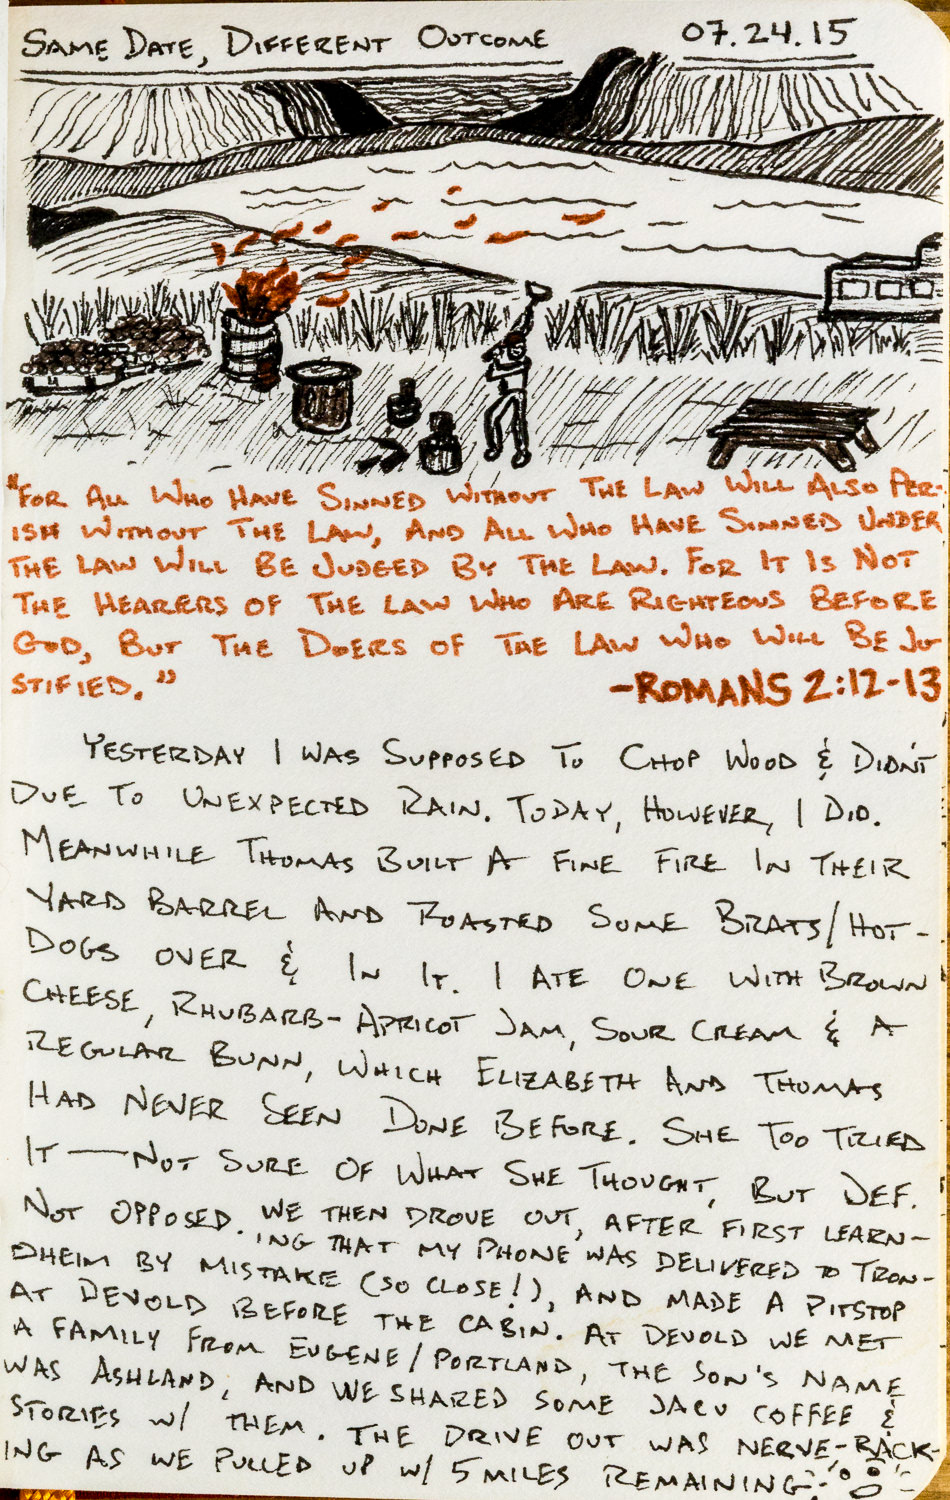 SAME DATE, DIFFERENT OUTCOME 07.24.15
"FOR ALL WHO HAVE SINNED WITHOUT THE LAW WILL ALSO PER-
ISH WITHOUT THE LAW, AND ALL WHO HAVE SINNED UNDER
THE LAW WILL BE JUDGED BY THE LAW. FOR IT IS NOT
THE HEARERS OF THE LAW WHO ARE RIGHTEOUS BEFORE
GOD, BUT THE DOERS OF THE LAW WHO WILL BE JU
STIFIED."
-ROMANS 2:12-13
YESTERDAY I WAS SUPPOSED TO CHOP WOOD & DIDN'T
DUE TO UNEXPECTED RAIN. TODAY, HOWEVER, I DID.
MEANWHILE THOMAS BUILT A FINE FIRE IN THEIR
YARD BARREL AND ROASTED SOME BRATS/HOT-
DOGS OVER & IN IT. I ATE ONE WITH BROWN
CHEESE, RHUBARB-APRICOT JAM, SOUR CREAM & A
REGULAR BUNN, WHICH ELIZABETH AND THOMAS
HAD NEVER SEEN DONE BEFORE. SHE TOO TRIED
IT — NOT SURE OF WHAT SHE THOUGHT, BUT DEF.
NOT OPPOSED. WE THEN DROVE OUT, AFTER FIRST LEARN-
ING THAT MY PHONE WAS DELIVERED TO TRON-
DHEIM BY MISTAKE (SO CLOSE!), AND MADE A PITSTOP
AT DEVOLD BEFORE THE CABIN. AT DEVOLD WE MET
A FAMILY FROM EUGENE/PORTLAND, THE SON'S NAME
WAS ASHLAND, AND WE SHARED SOME JACU COFFEE &
STORIES W/ THEM. THE DRIVE OUT WAS NERVE-RACK-
ING AS WE PULLED UP W/ 5 MILES REMAINING.